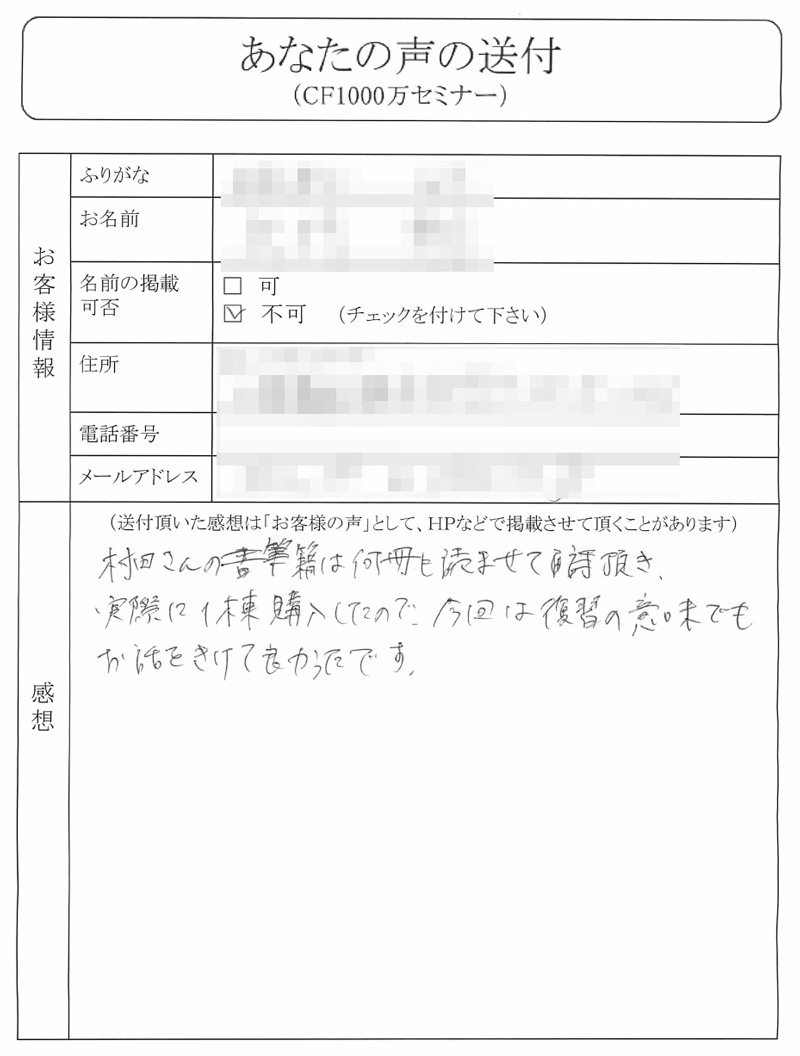 あなたの声の送付
(CF1000万セミナー)
お客様情報
ふりがな
お名前
名前の掲載
可否
□ 可
☑ 不可 (チェックを付けて下さい)
住所
電話番号
メールアドレス
感想
(送付頂いた感想は「お客様の声」として、HPなどで掲載させて頂くことがあります)
村田さんの籍は何冊も読ませて頂き、
実際に1棟購入したので、今回は復習の意味でも
お話をきけて良かったです。